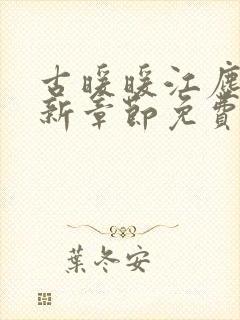 古暖暖江塵
新章節免費
葉冬安